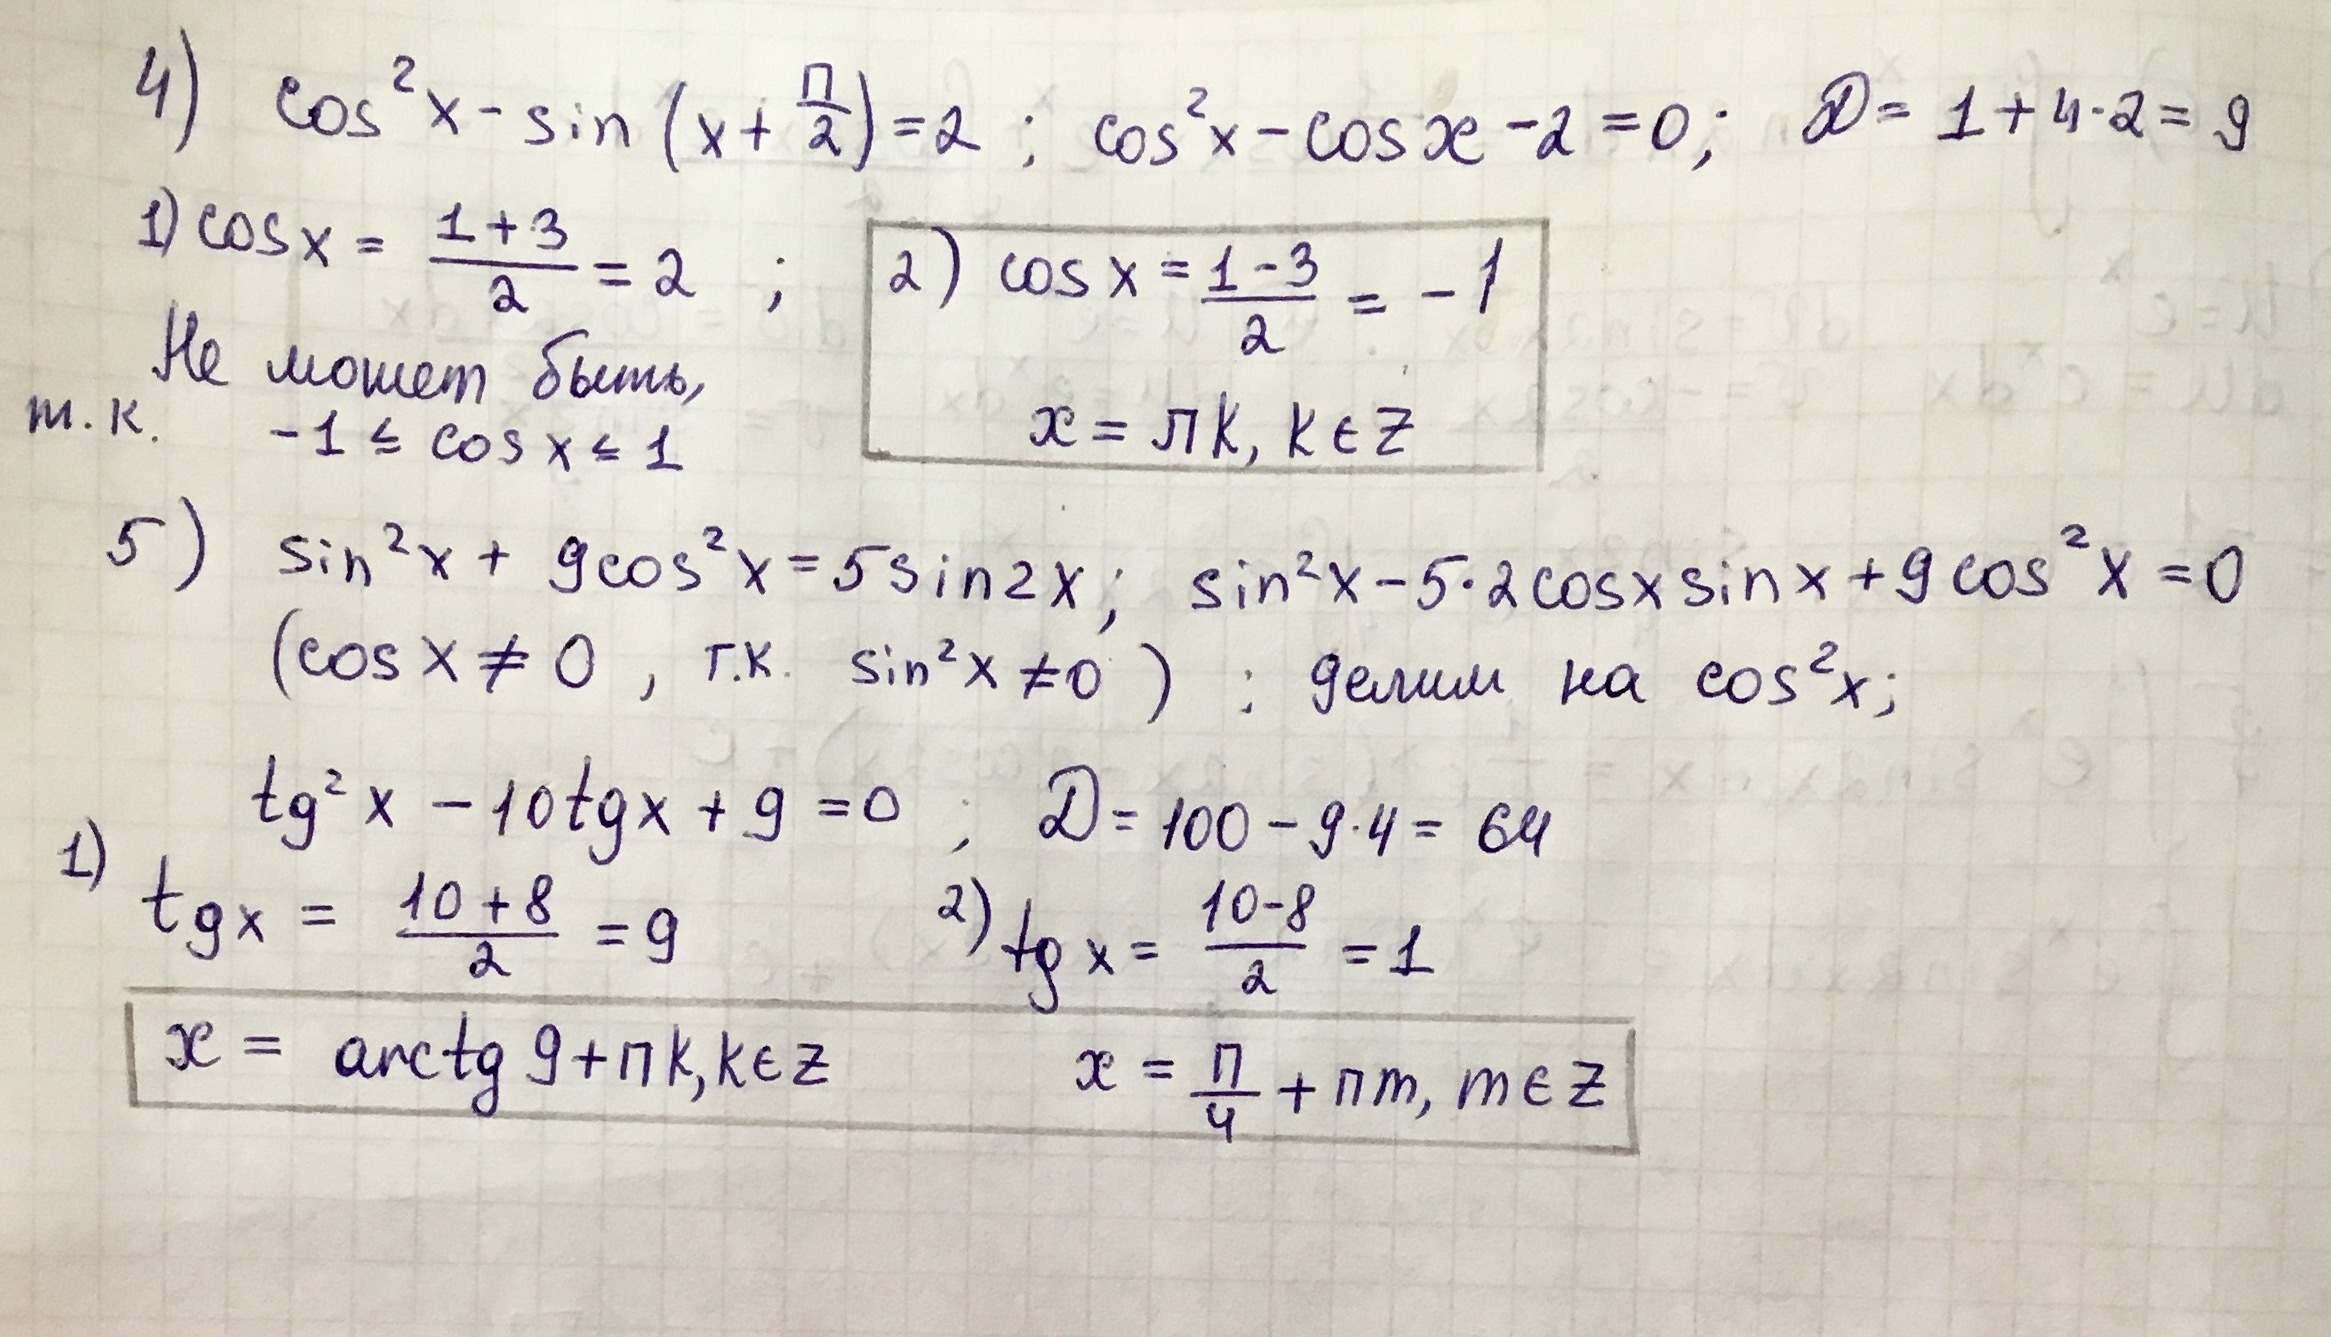 4) cos²x - sin (x + П/2) = 2 ; cos²x - cos x - 2 = 0; D = 1 + 4·2 = 9
1) cos x = (1+3)/2 = 2 ; 2) cos x = (1-3)/2 = -1
Не может быть,
т.к. -1 ≤ cos x ≤ 1
x = πk, k ∈ Z
5) sin²x + 9cos²x = 5sin2x; sin²x - 5·2cosx sinx + 9cos²x = 0
(cos x ≠ 0, т.к. sin²x ≠ 0) ; делим на cos²x;
tg²x - 10tgx + 9 = 0 ; D = 100 - 9·4 = 64
1) tgx = (10+8)/2 = 9 2) tgx = (10-8)/2 = 1
x = arctg 9 + пk, k ∈ Z x = П/4 + пm, m ∈ Z